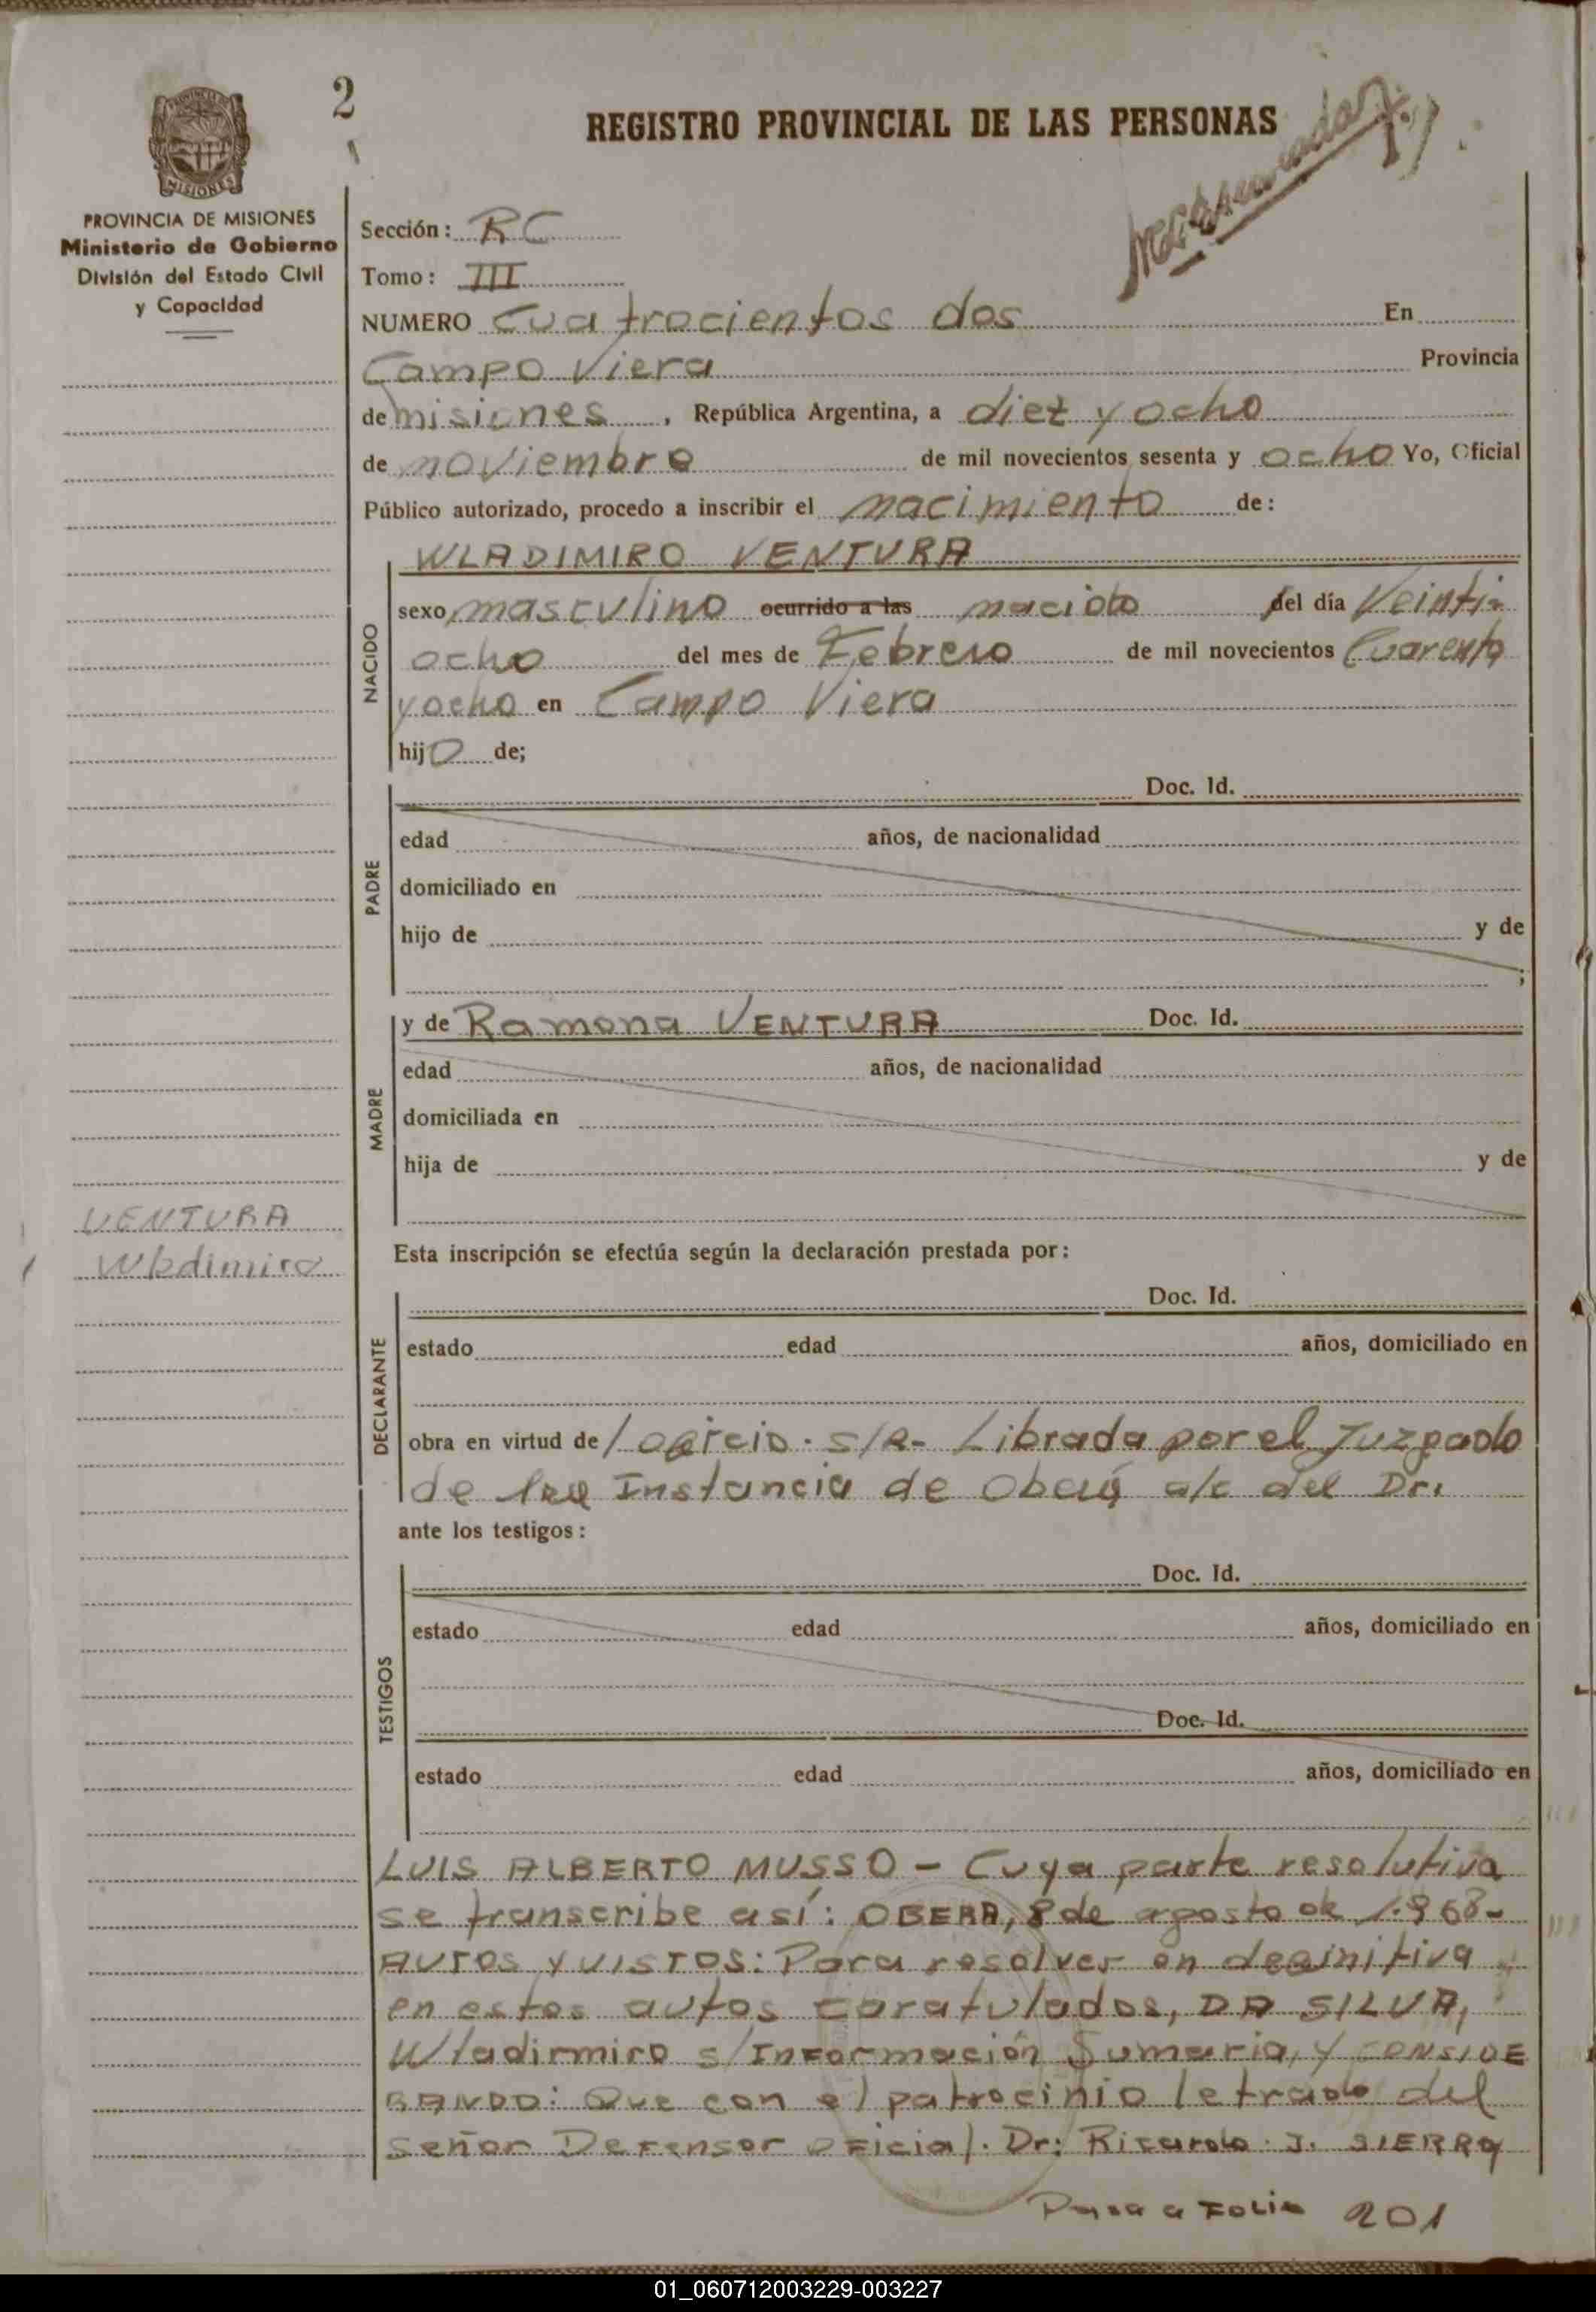 2
REGISTRO PROVINCIAL DE LAS PERSONAS
PROVINCIA DE MISIONES
Ministerio de Gobierno
División del Estado Civil
y Capacidad
Sección: RC
Tomo: III
NUMERO Cuatrocientos dos En
Campo Viera Provincia
de misiones, República Argentina, a diez y ocho
de noviembre de mil novecientos sesenta y ocho Yo, Oficial
Público autorizado, procedo a inscribir el nacimiento de:
WLADIMIRO VENTURA
NACIDO
sexo masculino ocurrido a las nacido del día Veinti-
ocho del mes de Febrero de mil novecientos Cuarenta
y ocho en Campo Viera
hijo de;
PADRE
Doc. Id.
edad años, de nacionalidad
domiciliado en
hijo de y de
;
MADRE
y de Ramona VENTURA Doc. Id.
edad años, de nacionalidad
domiciliada en
hija de y de
VENTURA
Wladimiro
Esta inscripción se efectúa según la declaración prestada por:
DECLARANTE
Doc. Id.
estado edad años, domiciliado en
obra en virtud de oficio. s/n- Librada por el Juzgado
de 1ra Instancia de Oberá a/c del Dr.
ante los testigos:
TESTIGOS
Doc. Id.
estado edad años, domiciliado en
Doc. Id.
estado edad años, domiciliado en
LUIS ALBERTO MUSSO - Cuya parte resolutiva
se transcribe así: OBERA, 8 de agosto de 1.968-
AUTOS Y VISTOS: Para resolver en definitiva
en estos autos caratulados, DA SILVA,
Wladirmiro s/Información Sumaria, Y CONSIDE
RANDO: Que con el patrocinio letrado del
señor Defensor oficial. Dr: Ricardo. J. SIERRA
Pasa a Folio 201
01_060712003229-003227